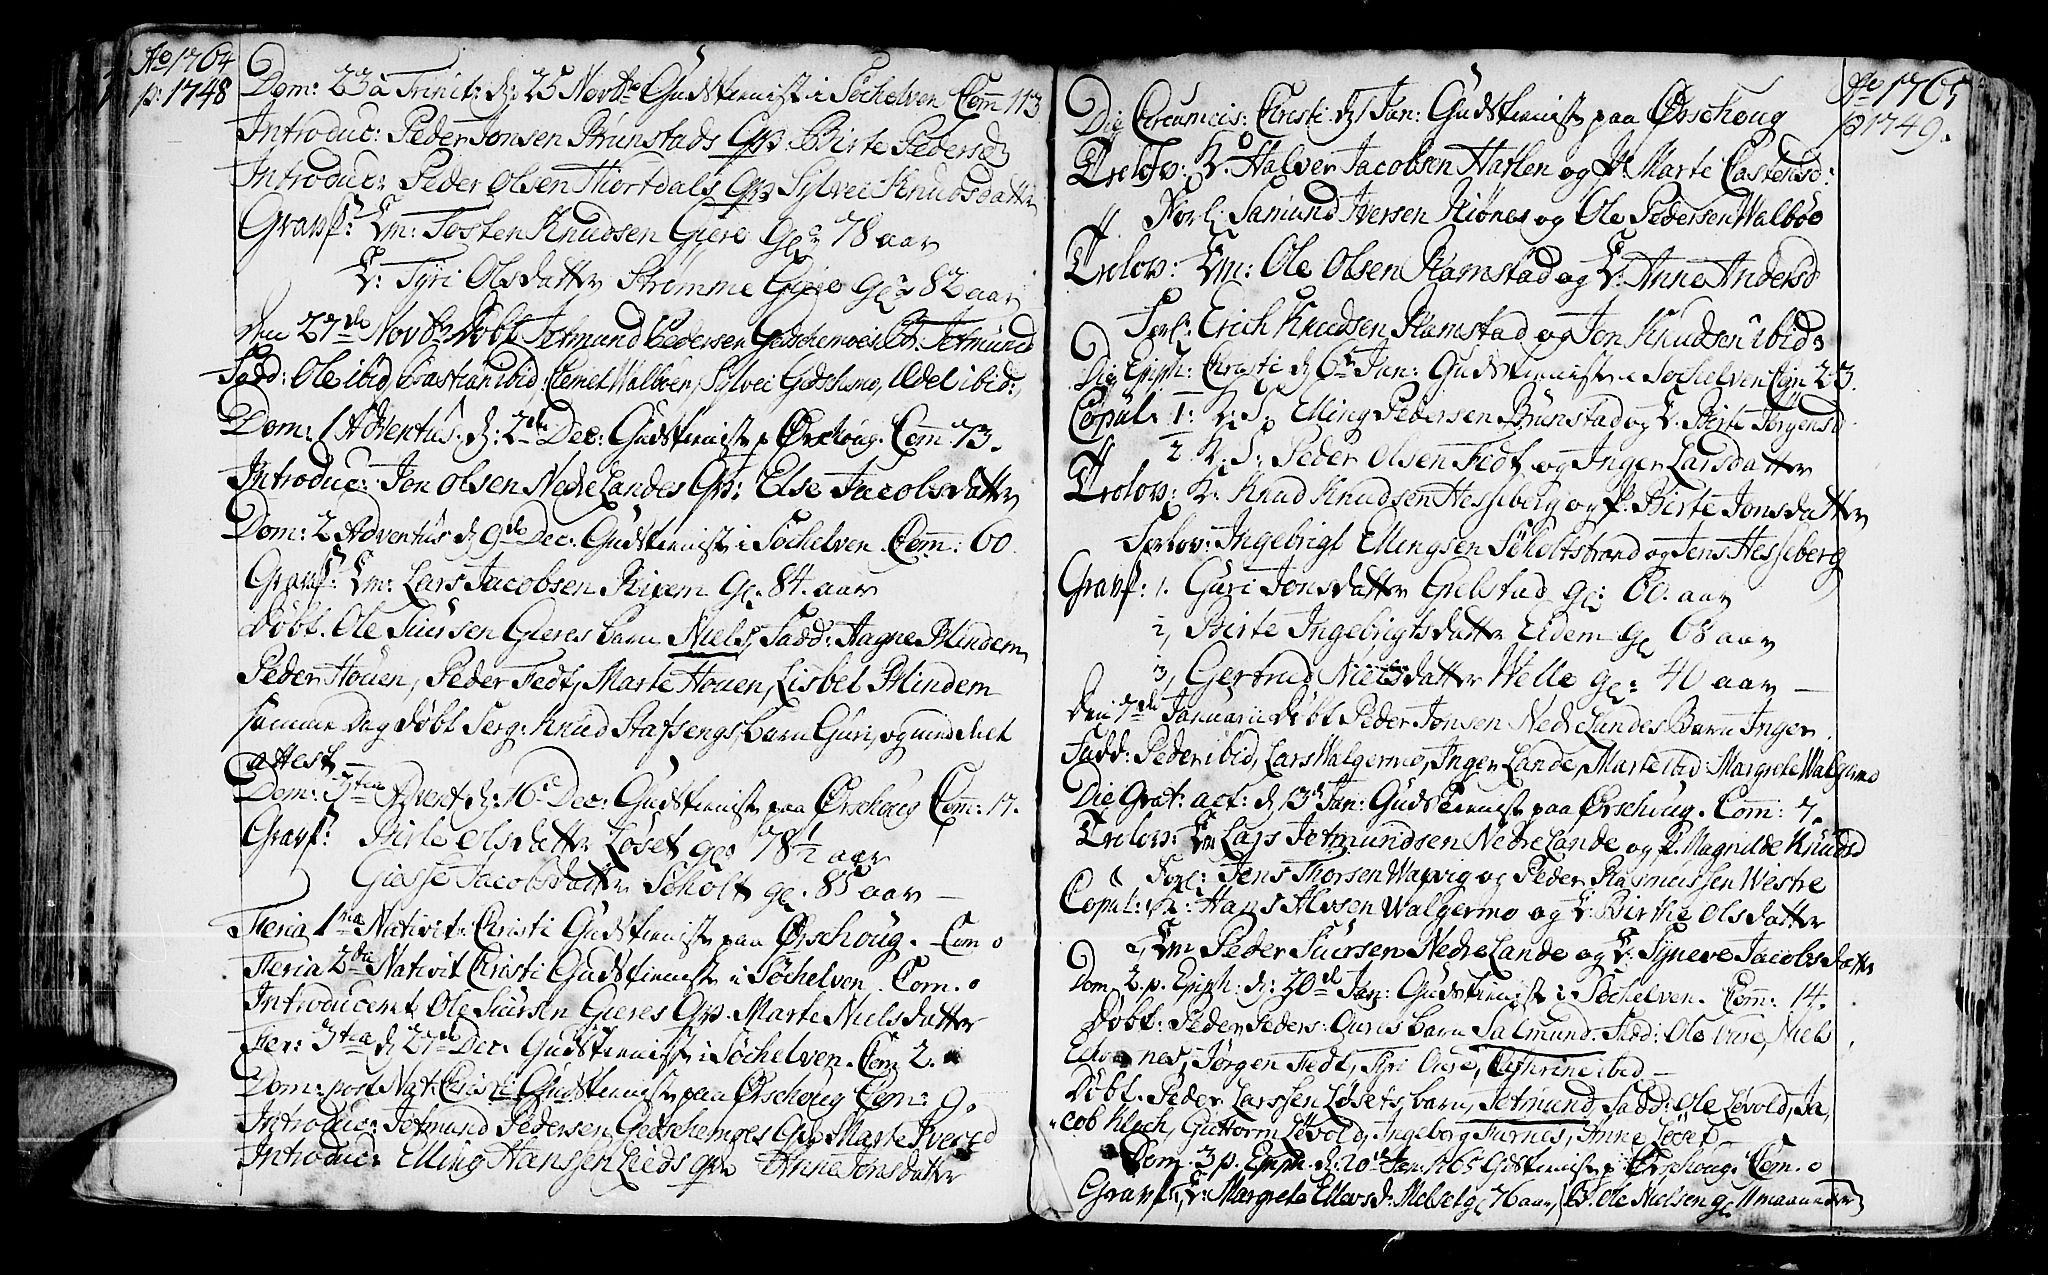 Ao 1764
p: 1748
Dom: 23 a Trinit: d: 25 Novbr Gudstienist i Söchelven Com 113
Introduc: Peder Jonsen Brunstads Qv: Birte Pedersd
Introduc: Peder Olsen Hiortdals Qv: Sylvei Knudsdatter
Gravf: Em: Tosten Knudsen Giere gl: 78 aar
E: Tyri Olsdatter Strømme Giere gl: 82 aar
den 27de Novbr Døbt Jetmund Pedersen Gedschemoes B. Jetmund
Fadd: Ole ibid, Bastian ibid: Clemet Walbøen, Sylvei Gedschemo, Adel ibid:
Dom: 1 Adventus. d: 2den Dec: Gudstienist p Ørschoug. Com 73.
Introduc: Jon Olsen Nedre Landes Qv: Else Jacobsdatter
Dom: 2 Adventus d 9de Dec. Gudstienist i Söchelven Com: 60.
Gravf: Em: Lars Jacobsen Riirem gl. 84. aar
Døbt. Ole Siursen Gieres barn Niels, Fadd: Aagne Blindem
Peder Houen, Peder Fedt, Marte Houen, Lisbet Blindem
samme Dag døbt Serg: Knud Stafsengs barn Guri, og meddelt
attest —
Dom: 3tia Advent d: 16 Dec: Gudstienist paa Ørschoug Com: 17.
Gravf: Birte Olsdatter Løset gl: 78½ aar
Giesse Jacobsdatter Søholt gl. 85 aar —
Feria 1ma Nativit: Christi Gudstienist paa Ørschoug. Com 0
Feria 2da Nativit Christi Gudstienist i Söchelven. Com. 0
Introduceret Ole Siursen Gieres Qv. Marte Nielsdatter
Fer: 3tia d 27de Dec. Gudstienist i Söchelven. Com 2.
Dom: post Nat: Christi Gudstienist paa Ørschoug Com: 9.
Introduc: Jetmund Pedersen Gedschemoes Qv: Marte Iversd
Introduc: Elling Hanssen Lieds qv: Anne Jonsdatter
Ao 1765
p 1749.
Die Circumcis: Christi d: 1 Jan: Gudstienist paa Ørschoug
Trolov: K. Halver Jacobsen Hatlen og P: Marte Castensd:
Forl: Samund Iversen Kiønes og Ole Pedersen Walbøe
Trolov: Em: Ole Olsen Ramstad og E: Anne Andersd
Forl: Erich Knudsen Ramstad og Jon Knudsen ibid:
Die Epiph: Christi d: 6te Jan: Gudstienist i Söchelven Com 23.
Copul: 1: K: S: Elling Pedersen Brunstad og E. Birte Jörgensd
2. K. S: Peder Olsen Fedt og Inger Larsdatter
Trolov: K: Knud Knudsen Hesseberg og P. Birte Jonsdatter
Forlov: Ingebrigt Ellingsen Søholtstrand og Jens Hesseberg
Gravf: 1. Guri Jonsdatter Grebstad gl: 60. aar
2, Birte Ingebrigtsdatter Eidem gl 68 aar
3, Gertrud Nielsdatter Welle gl: 40 aar —
den 7de Januarii døbt Peder Jonsen Nedre Landes Barn Inger
Fadd: Peder ibid, Lars Walgermo, Inger Lande, Marte ibid: Margrete Walgermo
Die Grat: act: d 13de Jan: Gudstienist paa Ørschoug. Com: 7.
Trolov: Em Lars Jetmundsen Nedre Lande og P. Magnilde Knudsd
Forl: Jens Thorsen Warvig og Peder Rasmussen Westre
Copul: K: Hans Alvsen Walgermo og E: Birthe Olsdatter
2, Em Peder Siursen Nedre Lande og E: Synneve Jacobsdatter
Dom 2. p. Epiph: d: 20de Jan: Gudstienist i Söchelven. Com: 14.
Døbt: Peder Peders: Ouris barn Salmund. Fadd: Ole Ouse, Niels
nes, Jørgen Fedt, Tyri Ouse, Cathrine ibid —
Døbt. Peder Larssen Løsets barn, Jetmund, Fadd: Ole Løvold, Ja,
cob Kloch, Guttorm Løvold, Ingeborg Furnes, Anne Løset —
Dom. 3 p. Epiph. d: 20de Jan. 1765 Gudstienist p Ørschoug. Com. 0
Gravf: 1, E: Margrete Ellevsd. Melset gl 76 aar, B. Ole Nielsen gl 11 maaneder